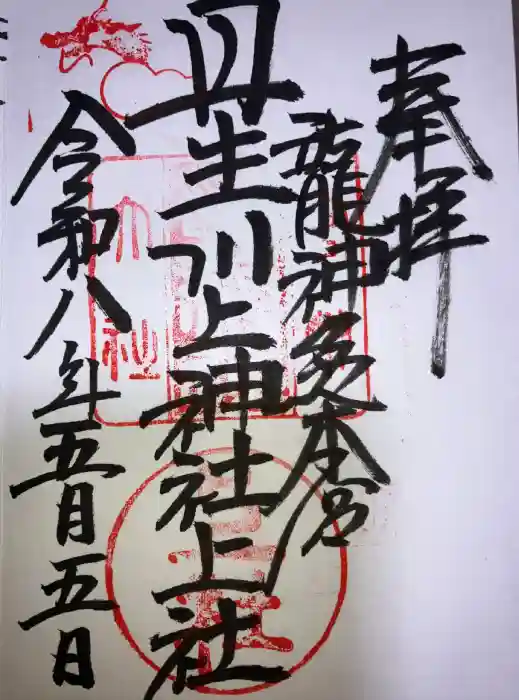 奉拝
龍神総本宮
丹生川上神社上社
令和八年五月五日